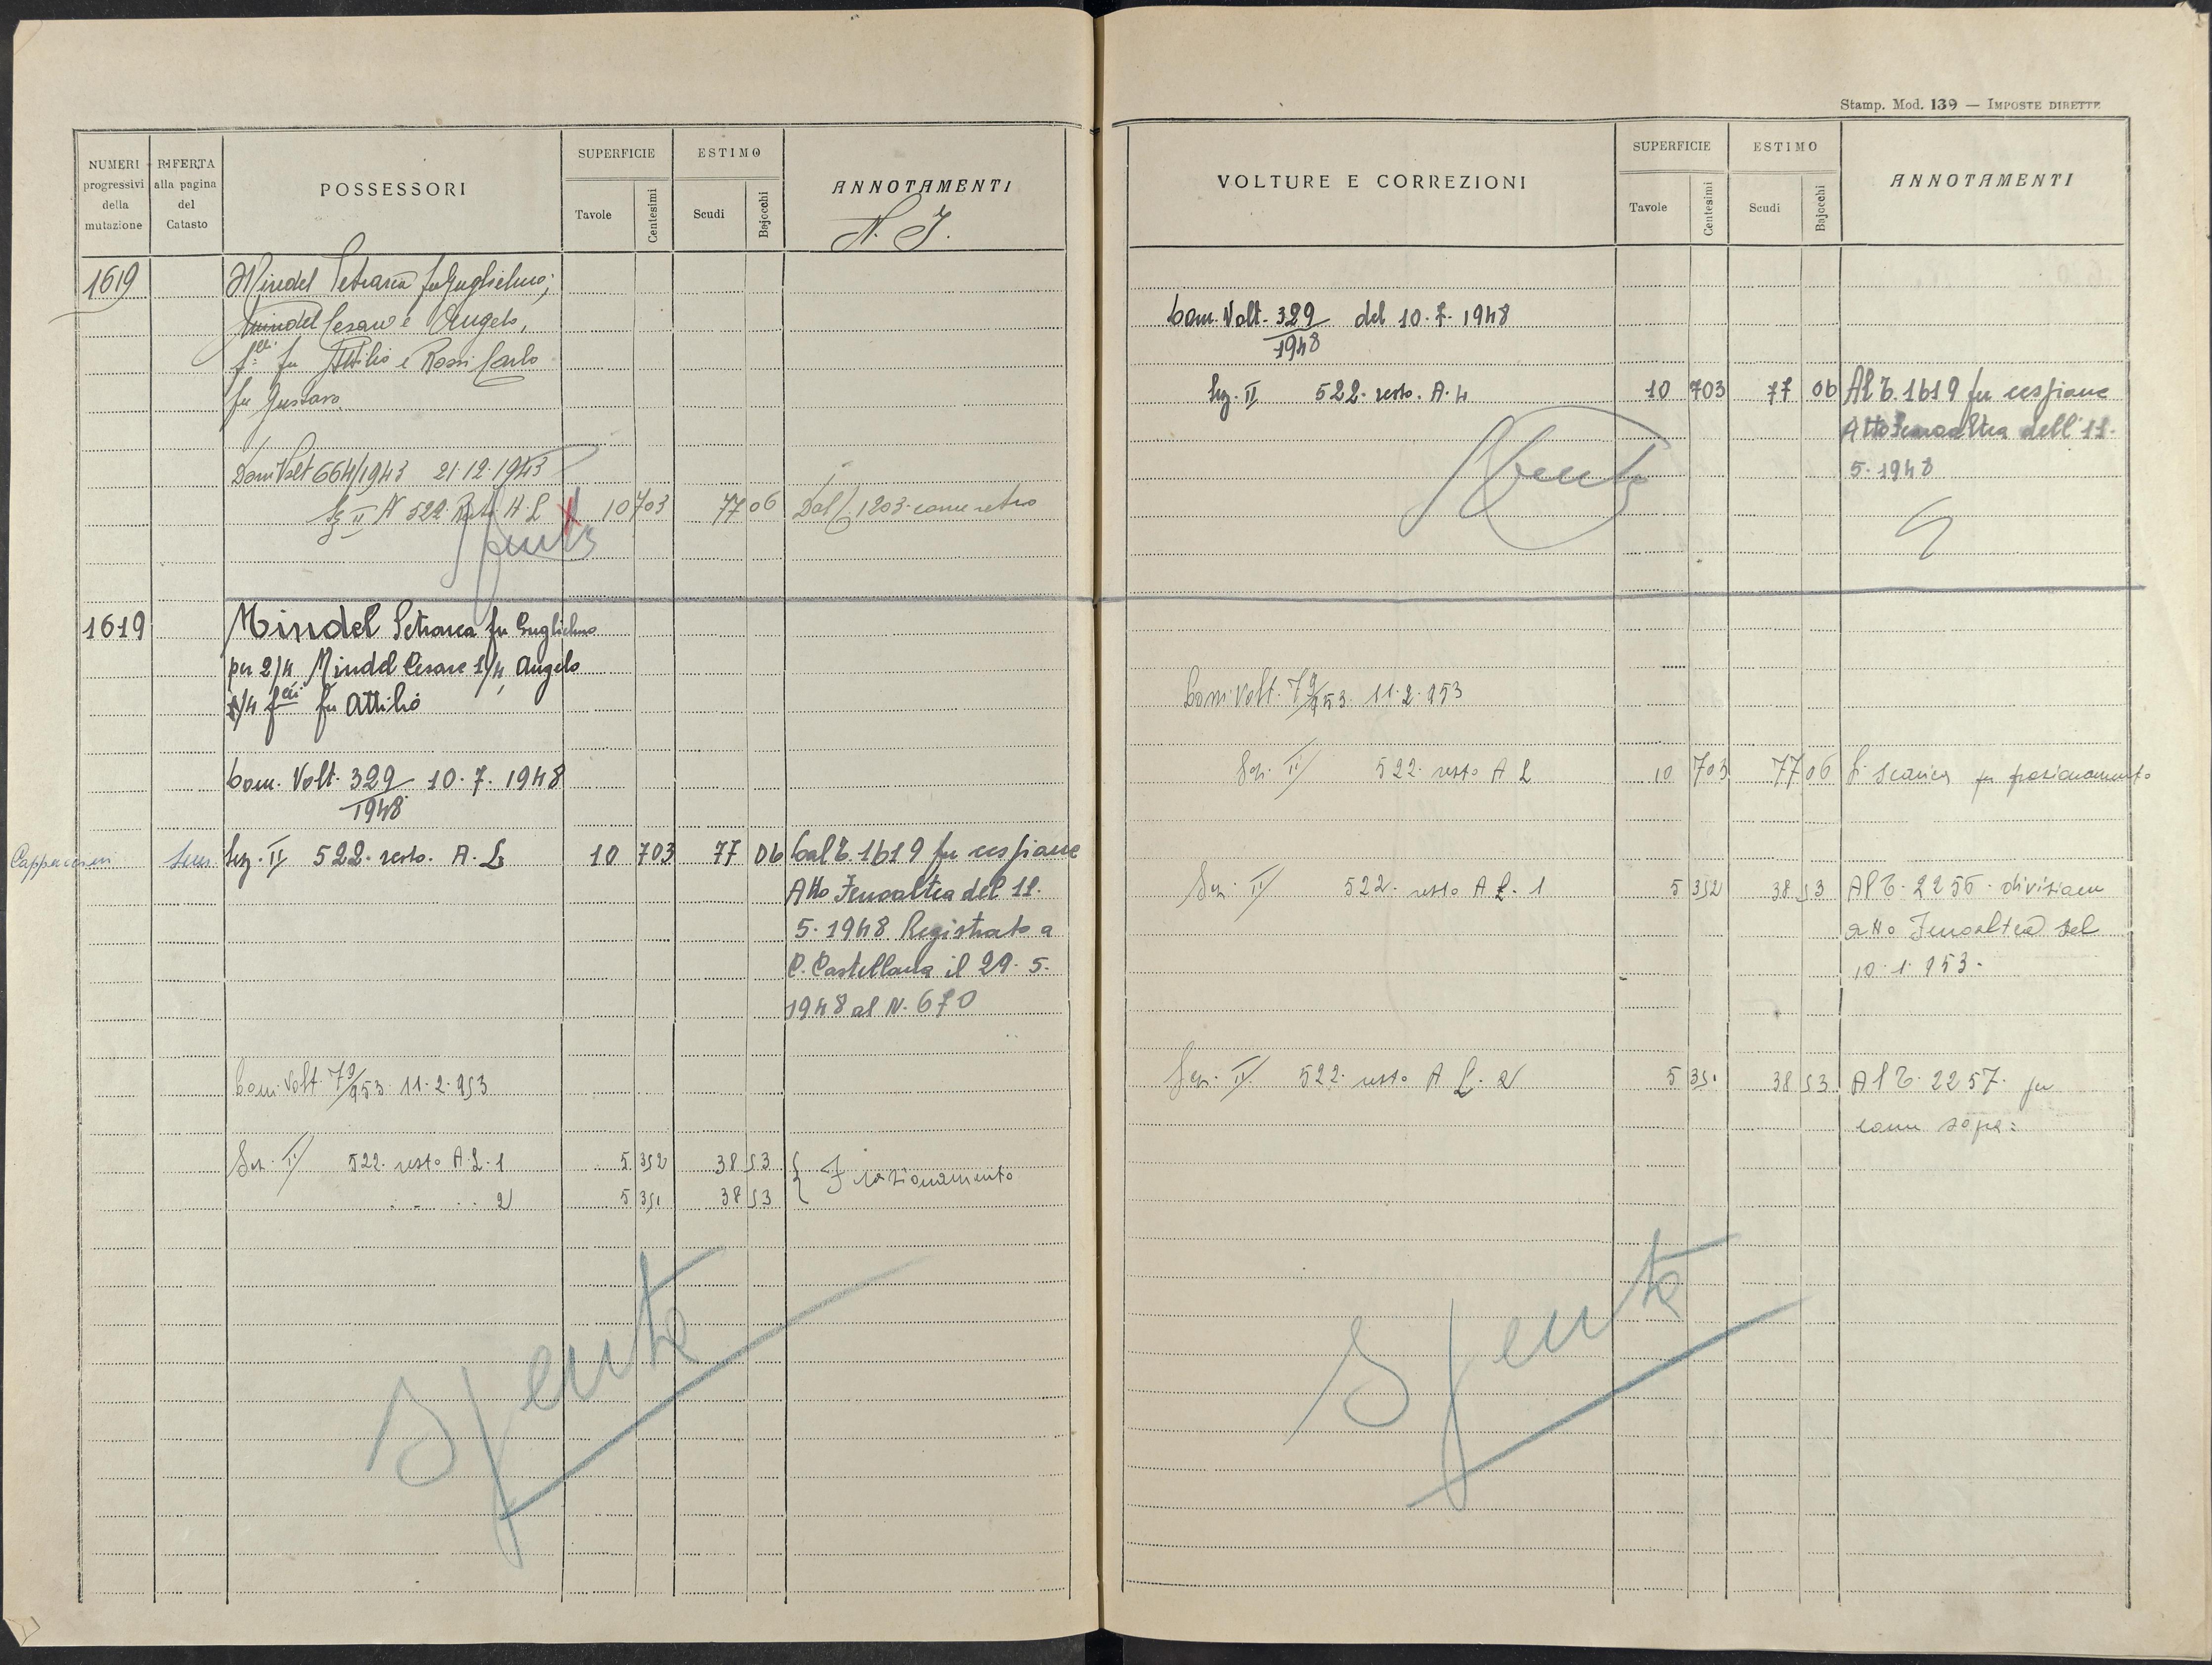 Stamp. Mod. 139 — IMPOSTE DIRETTE
NUMERI progressivi della mutazione
RIFERTA alla pagina del Catasto
POSSESSORI
SUPERFICIE
Tavole
Centesimi
ESTIMO
Scudi
Bajocchi
ANNOTAMENTI
N. I.
1619 Mindel Petrarca fu Guglielmo;
Mindel Cesare e Angelo,
f.lli fu Attilio e Rossi Carlo
fu Gustavo
Dom Volt 664/1943 21·12·1943
Sez II N 522 Resto A. L X 10 703 77 06 Dal 1203 come retro
Spenta
1619 Mindel Petrarca fu Guglielmo
per 2/4 Mindel Cesare 1/4, Angelo
1/4 f.lli fu Attilio
Dom. Volt. 329/1948 10. 7. 1948
Sez. II 522. resto. A. L 10 703 77 06 Dal T. 1619 per cessione
Atto Fenoaltea del 11.
5. 1948 Registrato a
C. Castellana il 29. 5.
1948 al N. 670
Dom. Volt. 79/953 11·2·953
Sez. II 522. resto A. L. 1 5 352 38 53 { Frazionamento
2 5 351 38 53
Spenta
VOLTURE E CORREZIONI
SUPERFICIE
Tavole
Centesimi
ESTIMO
Scudi
Bajocchi
ANNOTAMENTI
Dom. Volt. 329/1948 del 10. 7. 1948
Sez. II 522. resto. A. L 10 703 77 06 Al T. 1619 per cessione
Atto Fenoaltea dell' 11.
5. 1948
Spenta
Dom. Volt. 79/953. 11·2·953
Sez. II 522. resto A L 10 703 77 06 Si scarica per frazionamento
Sez. II 522. resto A L. 1 5 352 38 53 Al T. 2256. divisione
atto Fenoaltea del
10·1·953.
Sez. II 522. resto A L. 2 5 351 38 53 Al T. 2257. per
come sopra:
Spenta